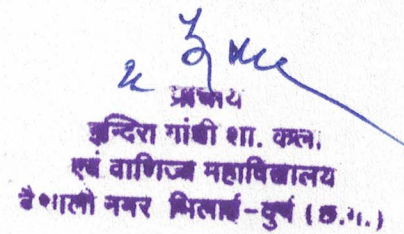 प्राचार्य
इन्दिरा गांधी शा. कला.
एवं वाणिज्य महाविद्यालय
वैशाली नगर भिलाई-दुर्ग (छ.ग.)